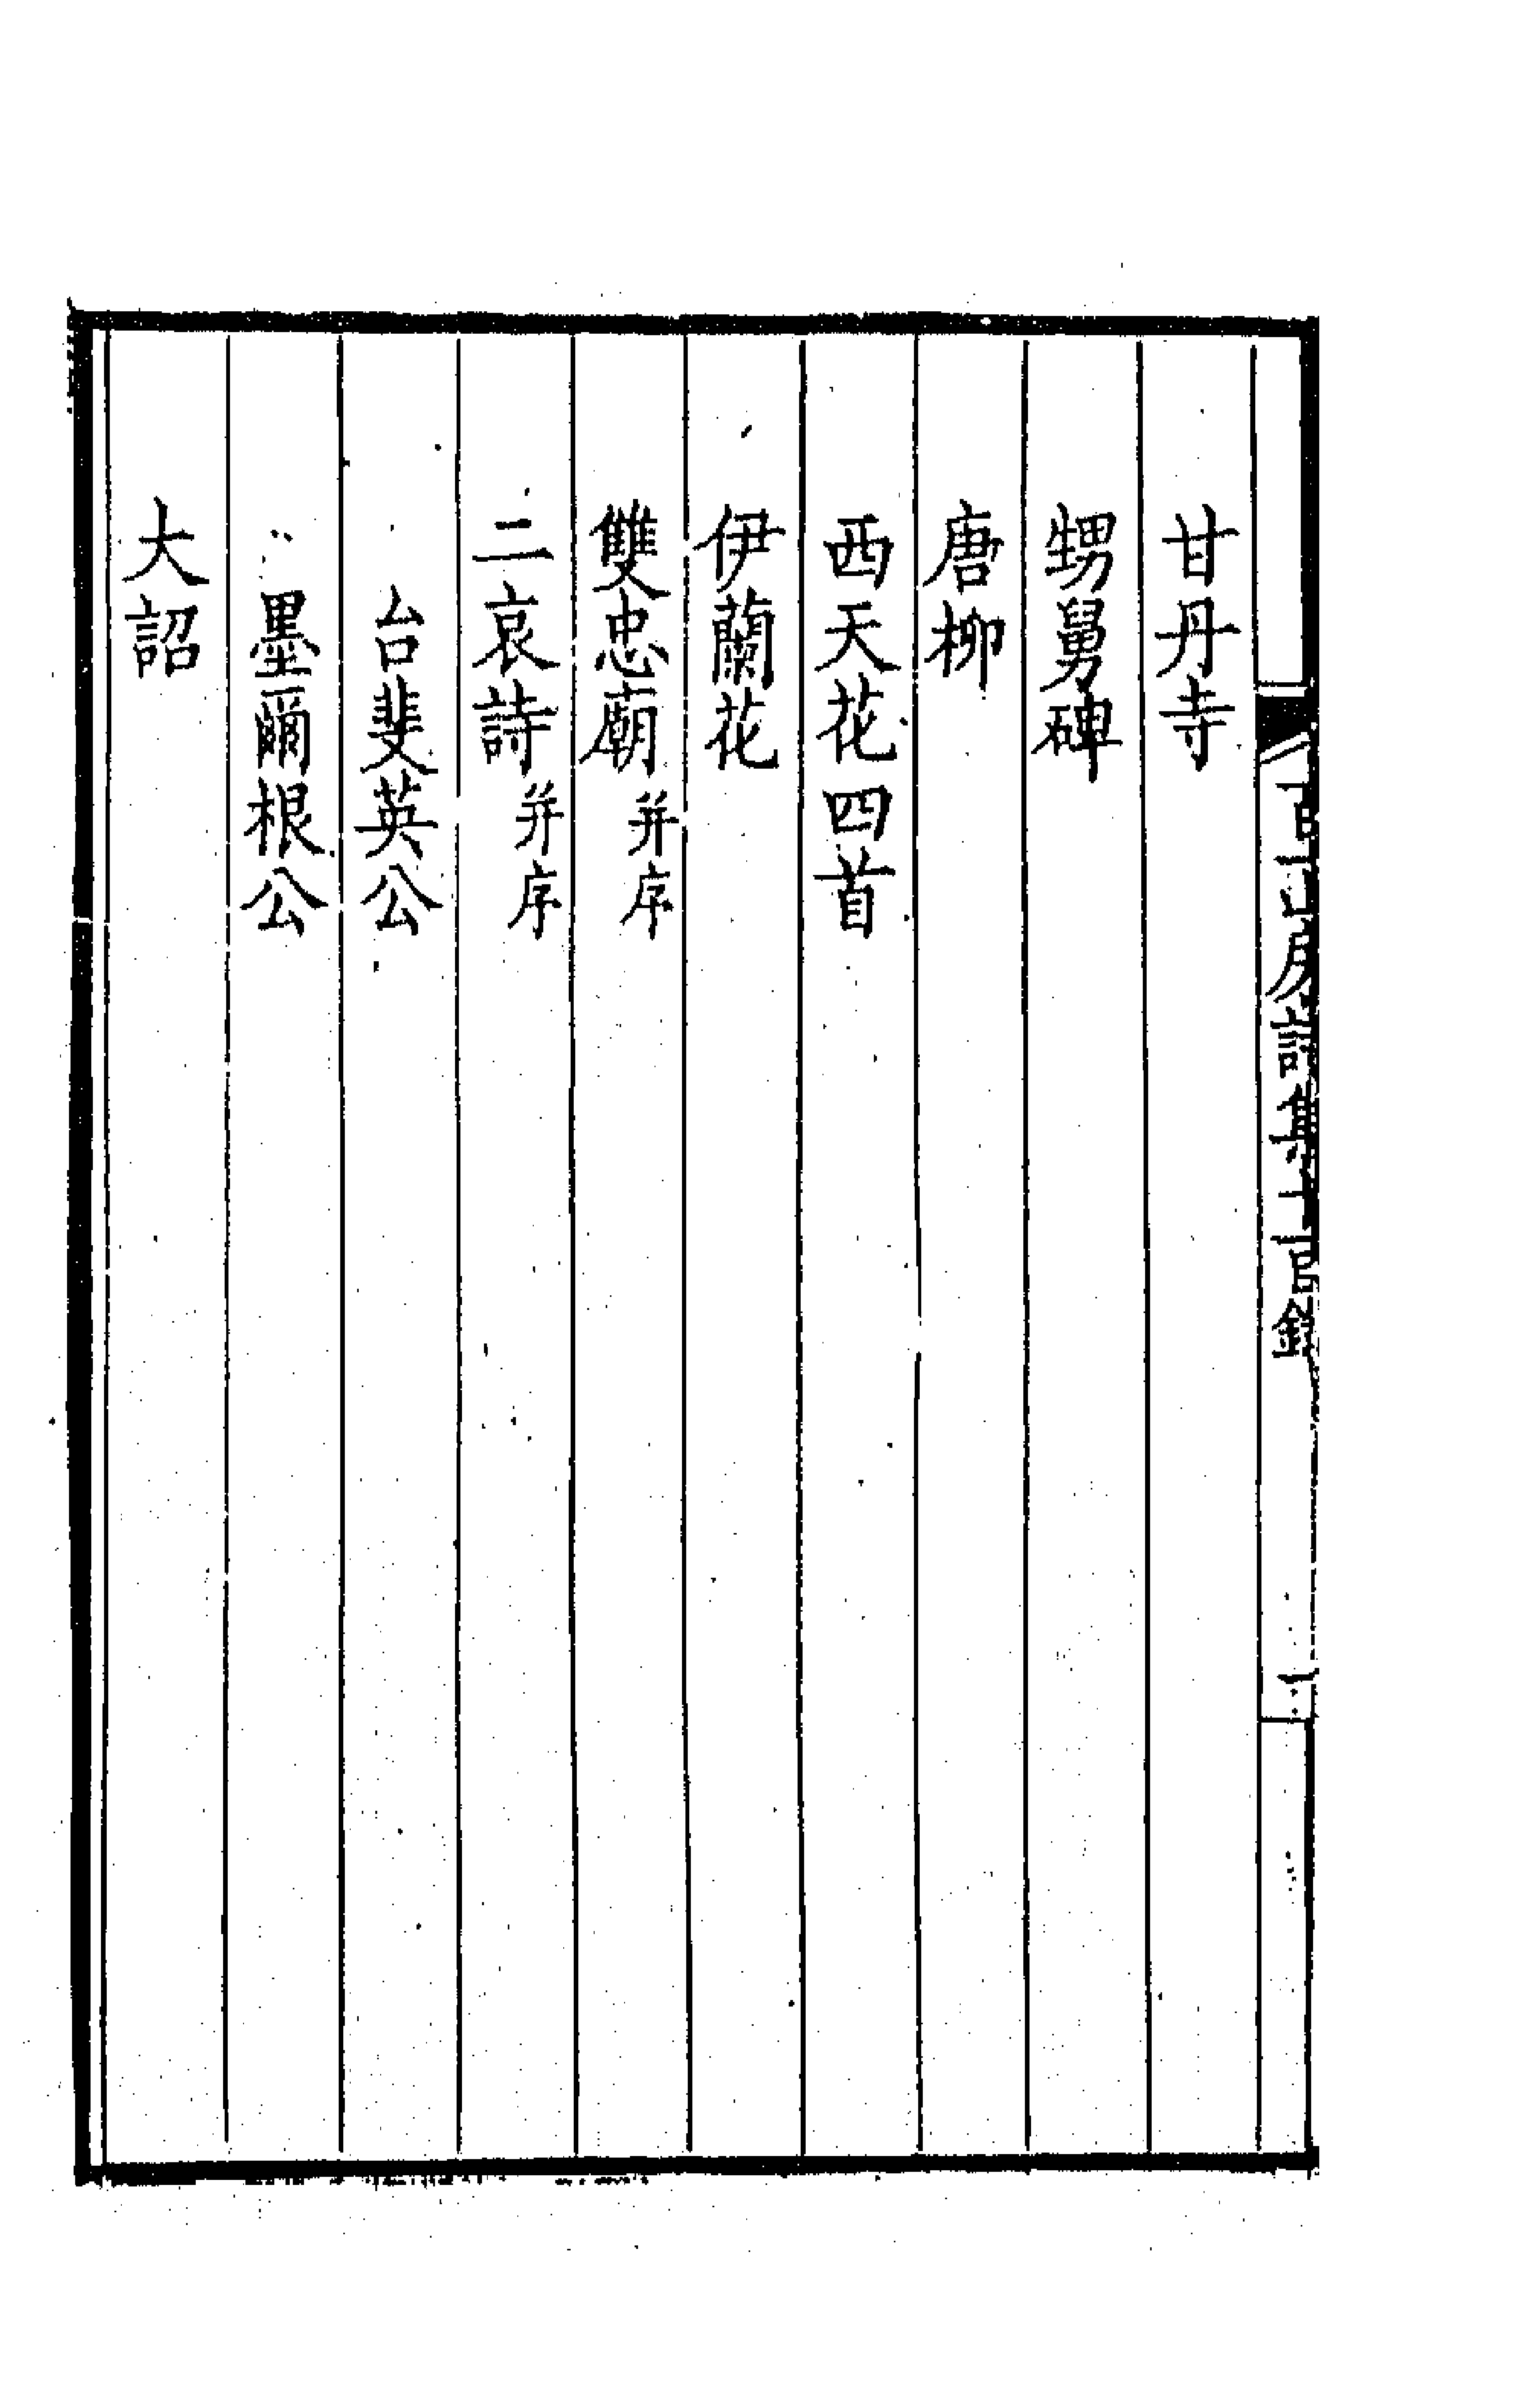 甘丹寺
甥舅碑
唐柳
西天花四首
伊蘭花
雙忠廟并序
二哀詩并序
台斐英公
墨爾根公
大詔